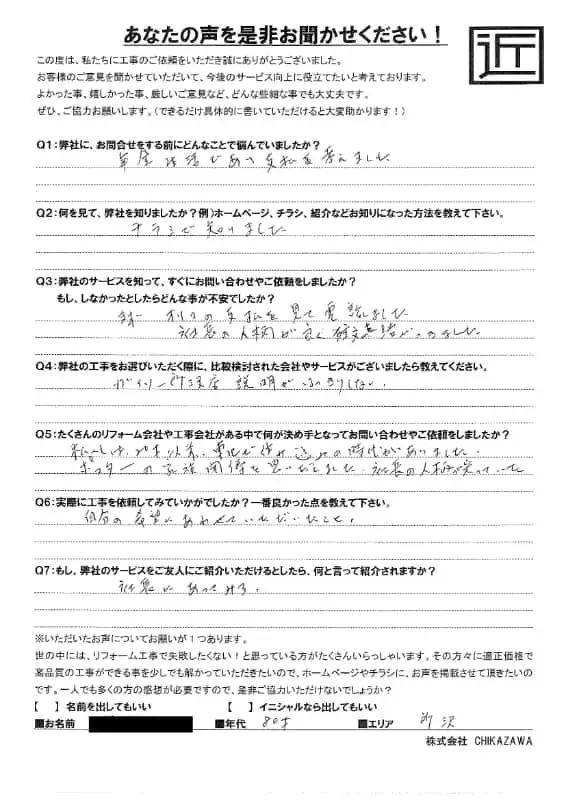 あなたの声を是非お聞かせください！
近
この度は、私たちに工事のご依頼をいただき誠にありがとうございました。
お客様のご意見を聞かせていただいて、今後のサービス向上に役立てたいと考えております。
よかった事、嬉しかった事、厳しいご意見など、どんな些細な事でも大丈夫です。
ぜひ、ご協力お願いします。（できるだけ具体的に書いていただけると大変助かります！）
Q1：弊社に、お問合せをする前にどんなことで悩んでいましたか？
支払を考えました
Q2：何を見て、弊社を知りましたか？例）ホームページ、チラシ、紹介などお知りになった方法を教えて下さい。
チラシで知りました
Q3：弊社のサービスを知って、すぐにお問い合わせやご依頼をしましたか？
もし、しなかったとしたらどんな事が不安でしたか？
の支払を見て電話しました
社長の人柄が良く
Q4：弊社の工事をお選びいただく際に、比較検討された会社やサービスがございましたら教えてください。
説明がはっきりしない
Q5：たくさんのリフォーム会社や工事会社がある中で何が決め手となってお問い合わせやご依頼をしましたか？
の時代がありました
社長の人柄が
Q6：実際に工事を依頼してみていかがでしたか？一番良かった点を教えて下さい。
自分の希望にあわせていただいたこと。
Q7：もし、弊社のサービスをご友人にご紹介いただけるとしたら、何と言って紹介されますか？
社長にあってみる
※いただいたお声についてお願いが１つあります。
世の中には、リフォーム工事で失敗したくない！と思っている方がたくさんいらっしゃいます。その方々に適正価格で
高品質の工事ができる事を少しでも解かっていただきたいので、ホームページやチラシに、お声を掲載させて頂きたいの
です。一人でも多くの方の感想が必要ですので、是非ご協力いただけないでしょうか？
【 】名前を出してもいい 【 】イニシャルなら出してもいい
■お名前 ■年代 80才 ■エリア 所沢
株式会社 CHIKAZAWA